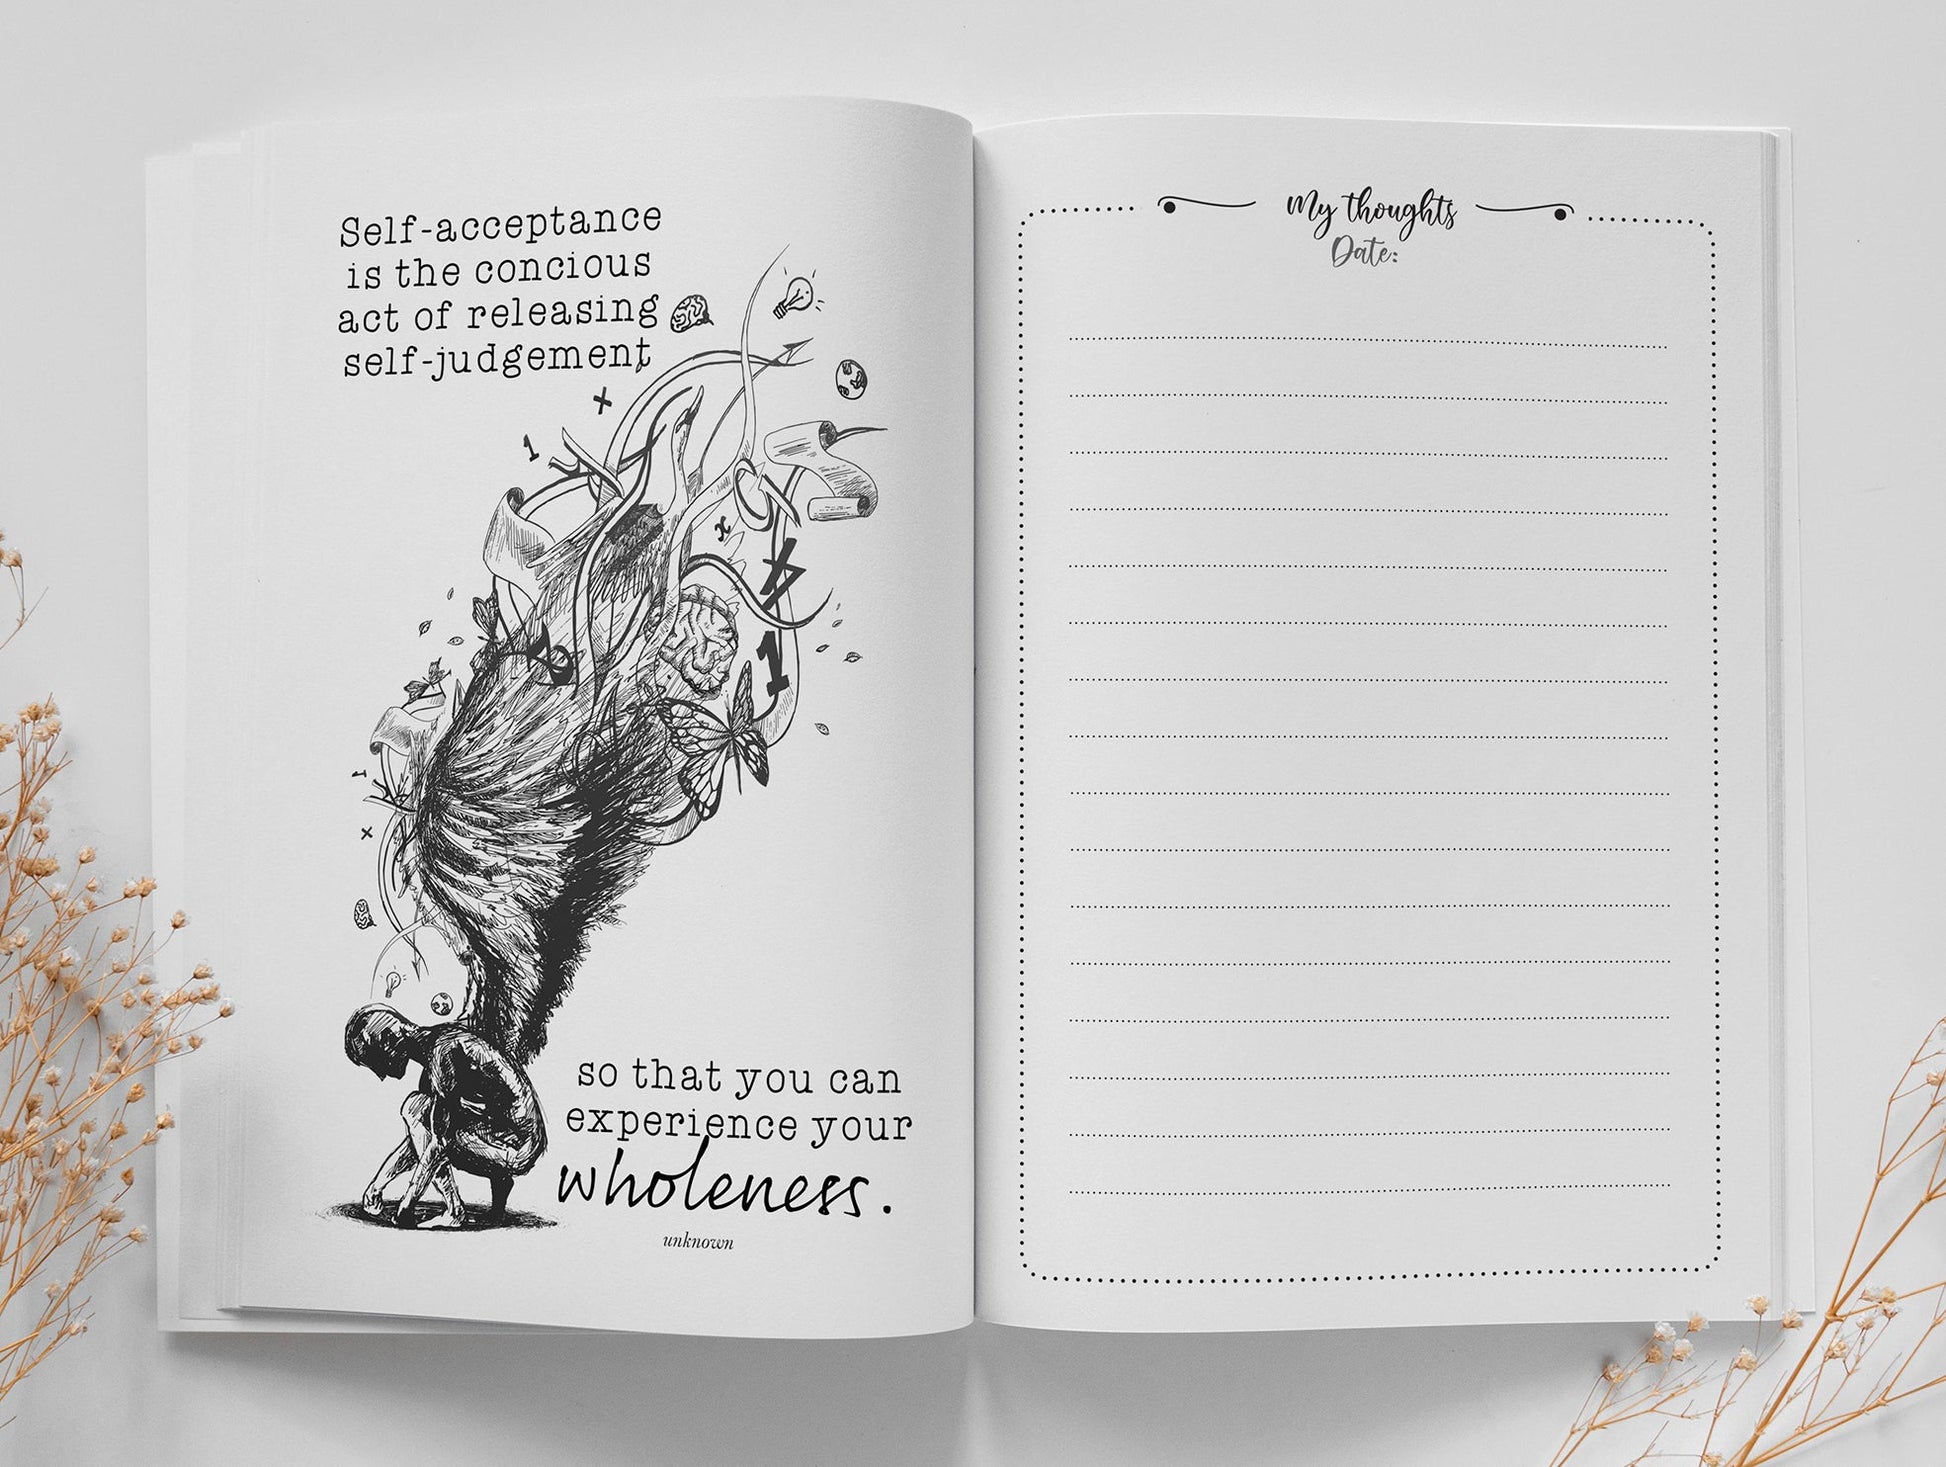 Self-acceptance
is the concious
act of releasing
self-judgement
x
1
x
1
1
x
so that you can
experience your
wholeness.
unknown
My thoughts
Date: